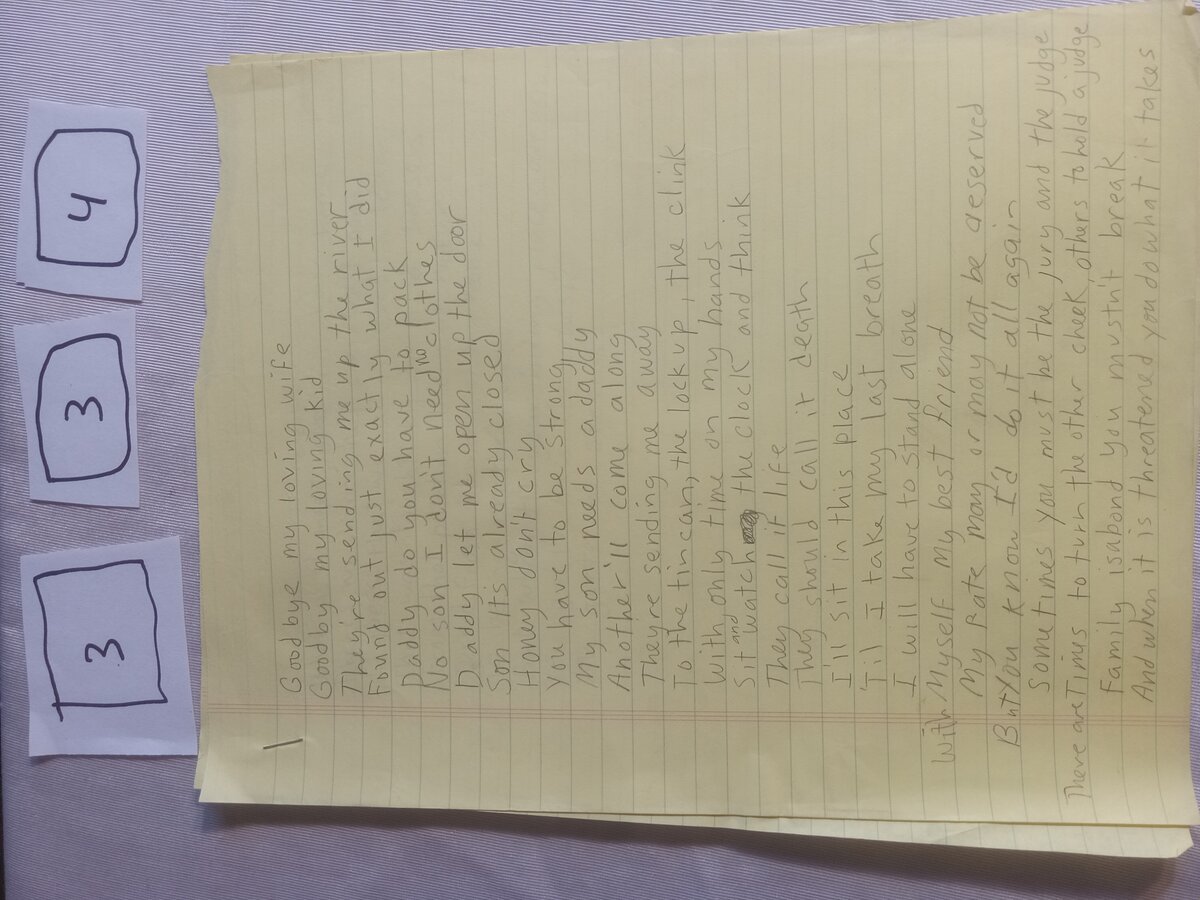 3 3 4
Goodbye my loving wife
Goodby my loving kid
They're sending me up the river
Found out just exactly what I did
Daddy do you have to pack
No son I don't need no clothes
Daddy let me open up the door
Son Its already closed
Honey don't cry
You have to be strong
My son needs a daddy
Another'll come along
They're sending me away
To the tin can, the lockup, the clink
With only time on my hands
Sit and watch the clock and think
They call it life
They should call it death
I'll sit in this place
'Til I take my last breath
I will have to stand alone
With Myself My best friend
My Fate may or may not be deserved
But You know I'd do it all again
Sometimes you must be the jury and the judge
There are Times to turn the other cheek, others to hold a judge
Family is a bond you mustn't break
And when it is threatened you do what it takes